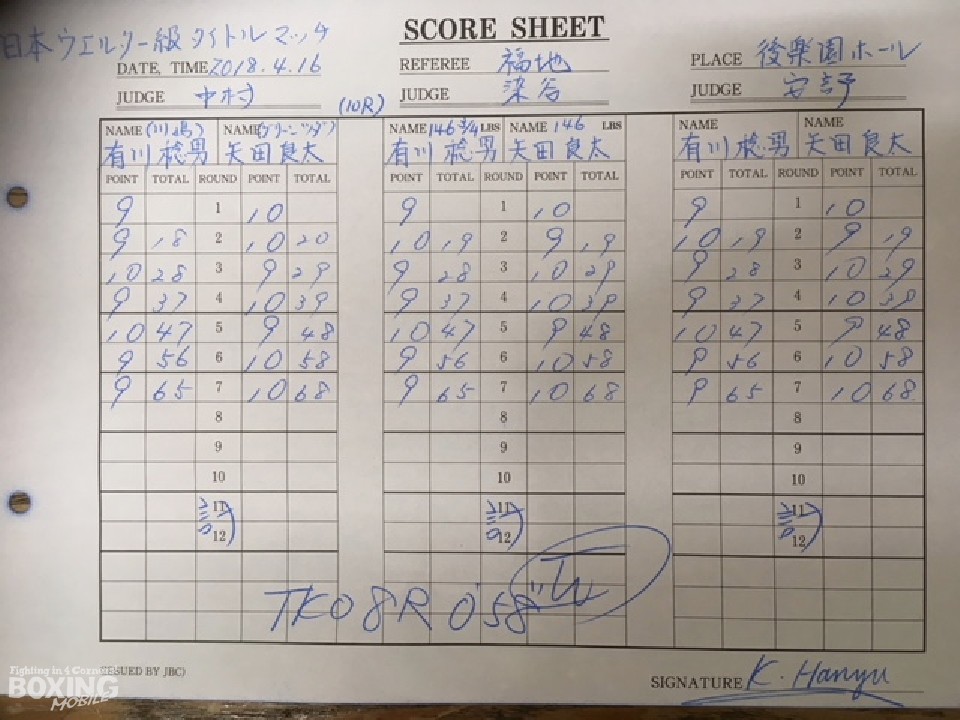 SCORE SHEET
日本ウエルター級タイトルマッチ
DATE, TIME 2018.4.16 REFEREE 福地 PLACE 後楽園ホール
JUDGE 中村 (10R) JUDGE 染谷 JUDGE 安部
NAME (川島) NAME (グリーンツダ) NAME 146 3/4 LBS NAME 146 LBS NAME NAME
有川稔男 矢田良太 有川稔男 矢田良太 有川稔男 矢田良太
POINT TOTAL ROUND POINT TOTAL POINT TOTAL ROUND POINT TOTAL POINT TOTAL ROUND POINT TOTAL
9 1 10 9 1 10 9 1 10
9 18 2 10 20 10 19 2 9 19 10 19 2 9 19
10 28 3 9 29 9 28 3 10 29 9 28 3 10 29
9 37 4 10 39 9 37 4 10 39 9 37 4 10 39
10 47 5 9 48 10 47 5 9 48 10 47 5 9 48
9 56 6 10 58 9 56 6 10 58 9 56 6 10 58
9 65 7 10 68 9 65 7 10 68 9 65 7 10 68
8 8 8
9 9 9
10 10 10
11 11 11
12 12 12
TKO 8R 0'58"
(ISSUED BY JBC)
SIGNATURE K. Hanyu
Fighting in 4 Corner
BOXING
MOBILE